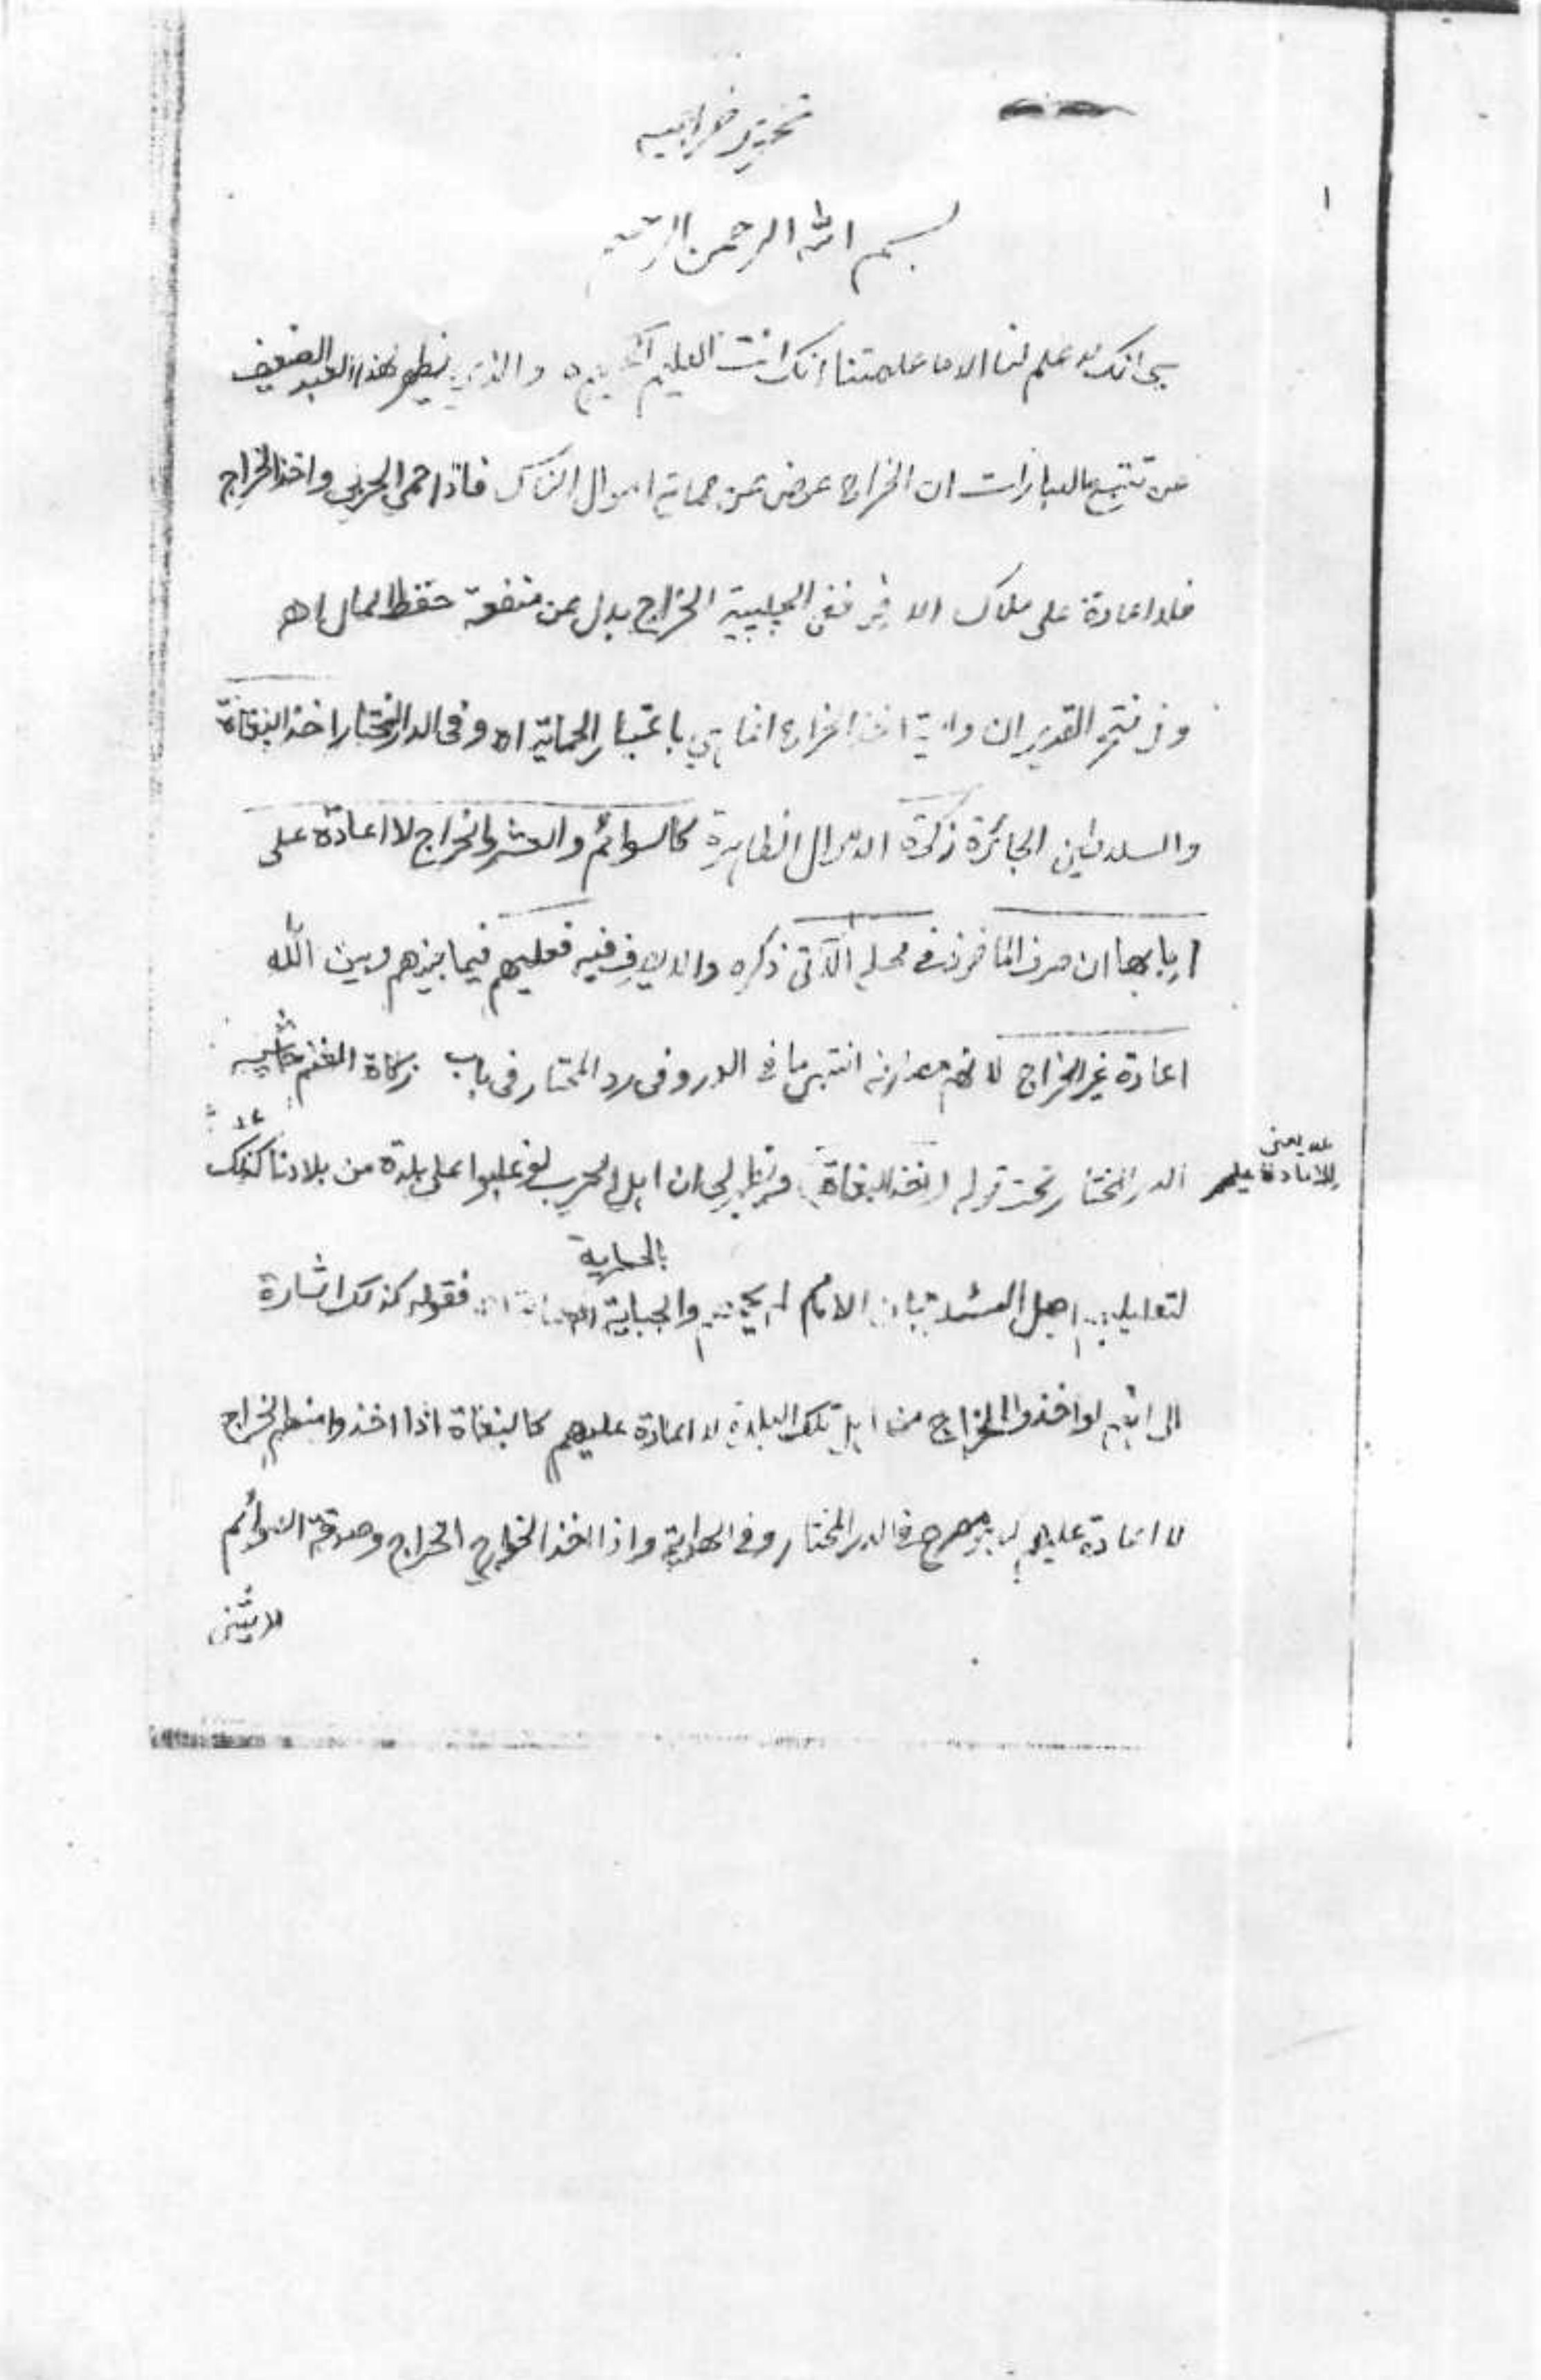 ١
بسم الله الرحمن الرحيم
سبحانك لا علم لنا الا ما علمتنا انك انت العليم الحكيم والذي يظهر لهذا العبد الضعيف
من تتبع العبارات ان الخراج عوض عن حماية اموال الناس فاذا حمى الحربي واخذ الخراج
فلا اعادة على ملاك الارض ففي الچلبية الخراج بدل عن منفعة حفظ المال اه
وفي فتح القدير ان ولاية اخذ الخراج انما هي باعتبار الحماية اه وفي الدر المختار اخذ البغاة
والسلاطين الجائرة زكوة الاموال الظاهرة كالسوائم والعشر والخراج لا اعادة على
اربابها ان صرف الماخوذ في محله الآتي ذكره والا يصرف فيه فعليهم فيما بينهم وبين الله
اعادة غير الخراج لانهم مصارفه انتهى ما في الدر وفي رد المحتار في باب زكاة الغنم حاشية
الدر المختار تحت قوله اخذ البغاة ويظهر لي ان اهل الحرب لو غلبوا على بلدة من بلادنا كذلك
عه يعني
لا اعادة عليهم
لتعليلهم اصل المسئلة بان الامام لم يحمهم والجباية بالحماية فقوله كذلك اشارة
الى انهم لو اخذوا الخراج من اهل تلك البلدة لا اعادة عليهم كالبغاة اذا اخذوا منهم الخراج
لا اعادة عليهم مصرح في الدر المختار وفي الهداية واذا اخذ الخوارج الخراج وصدقة السوائم
لا يثنى